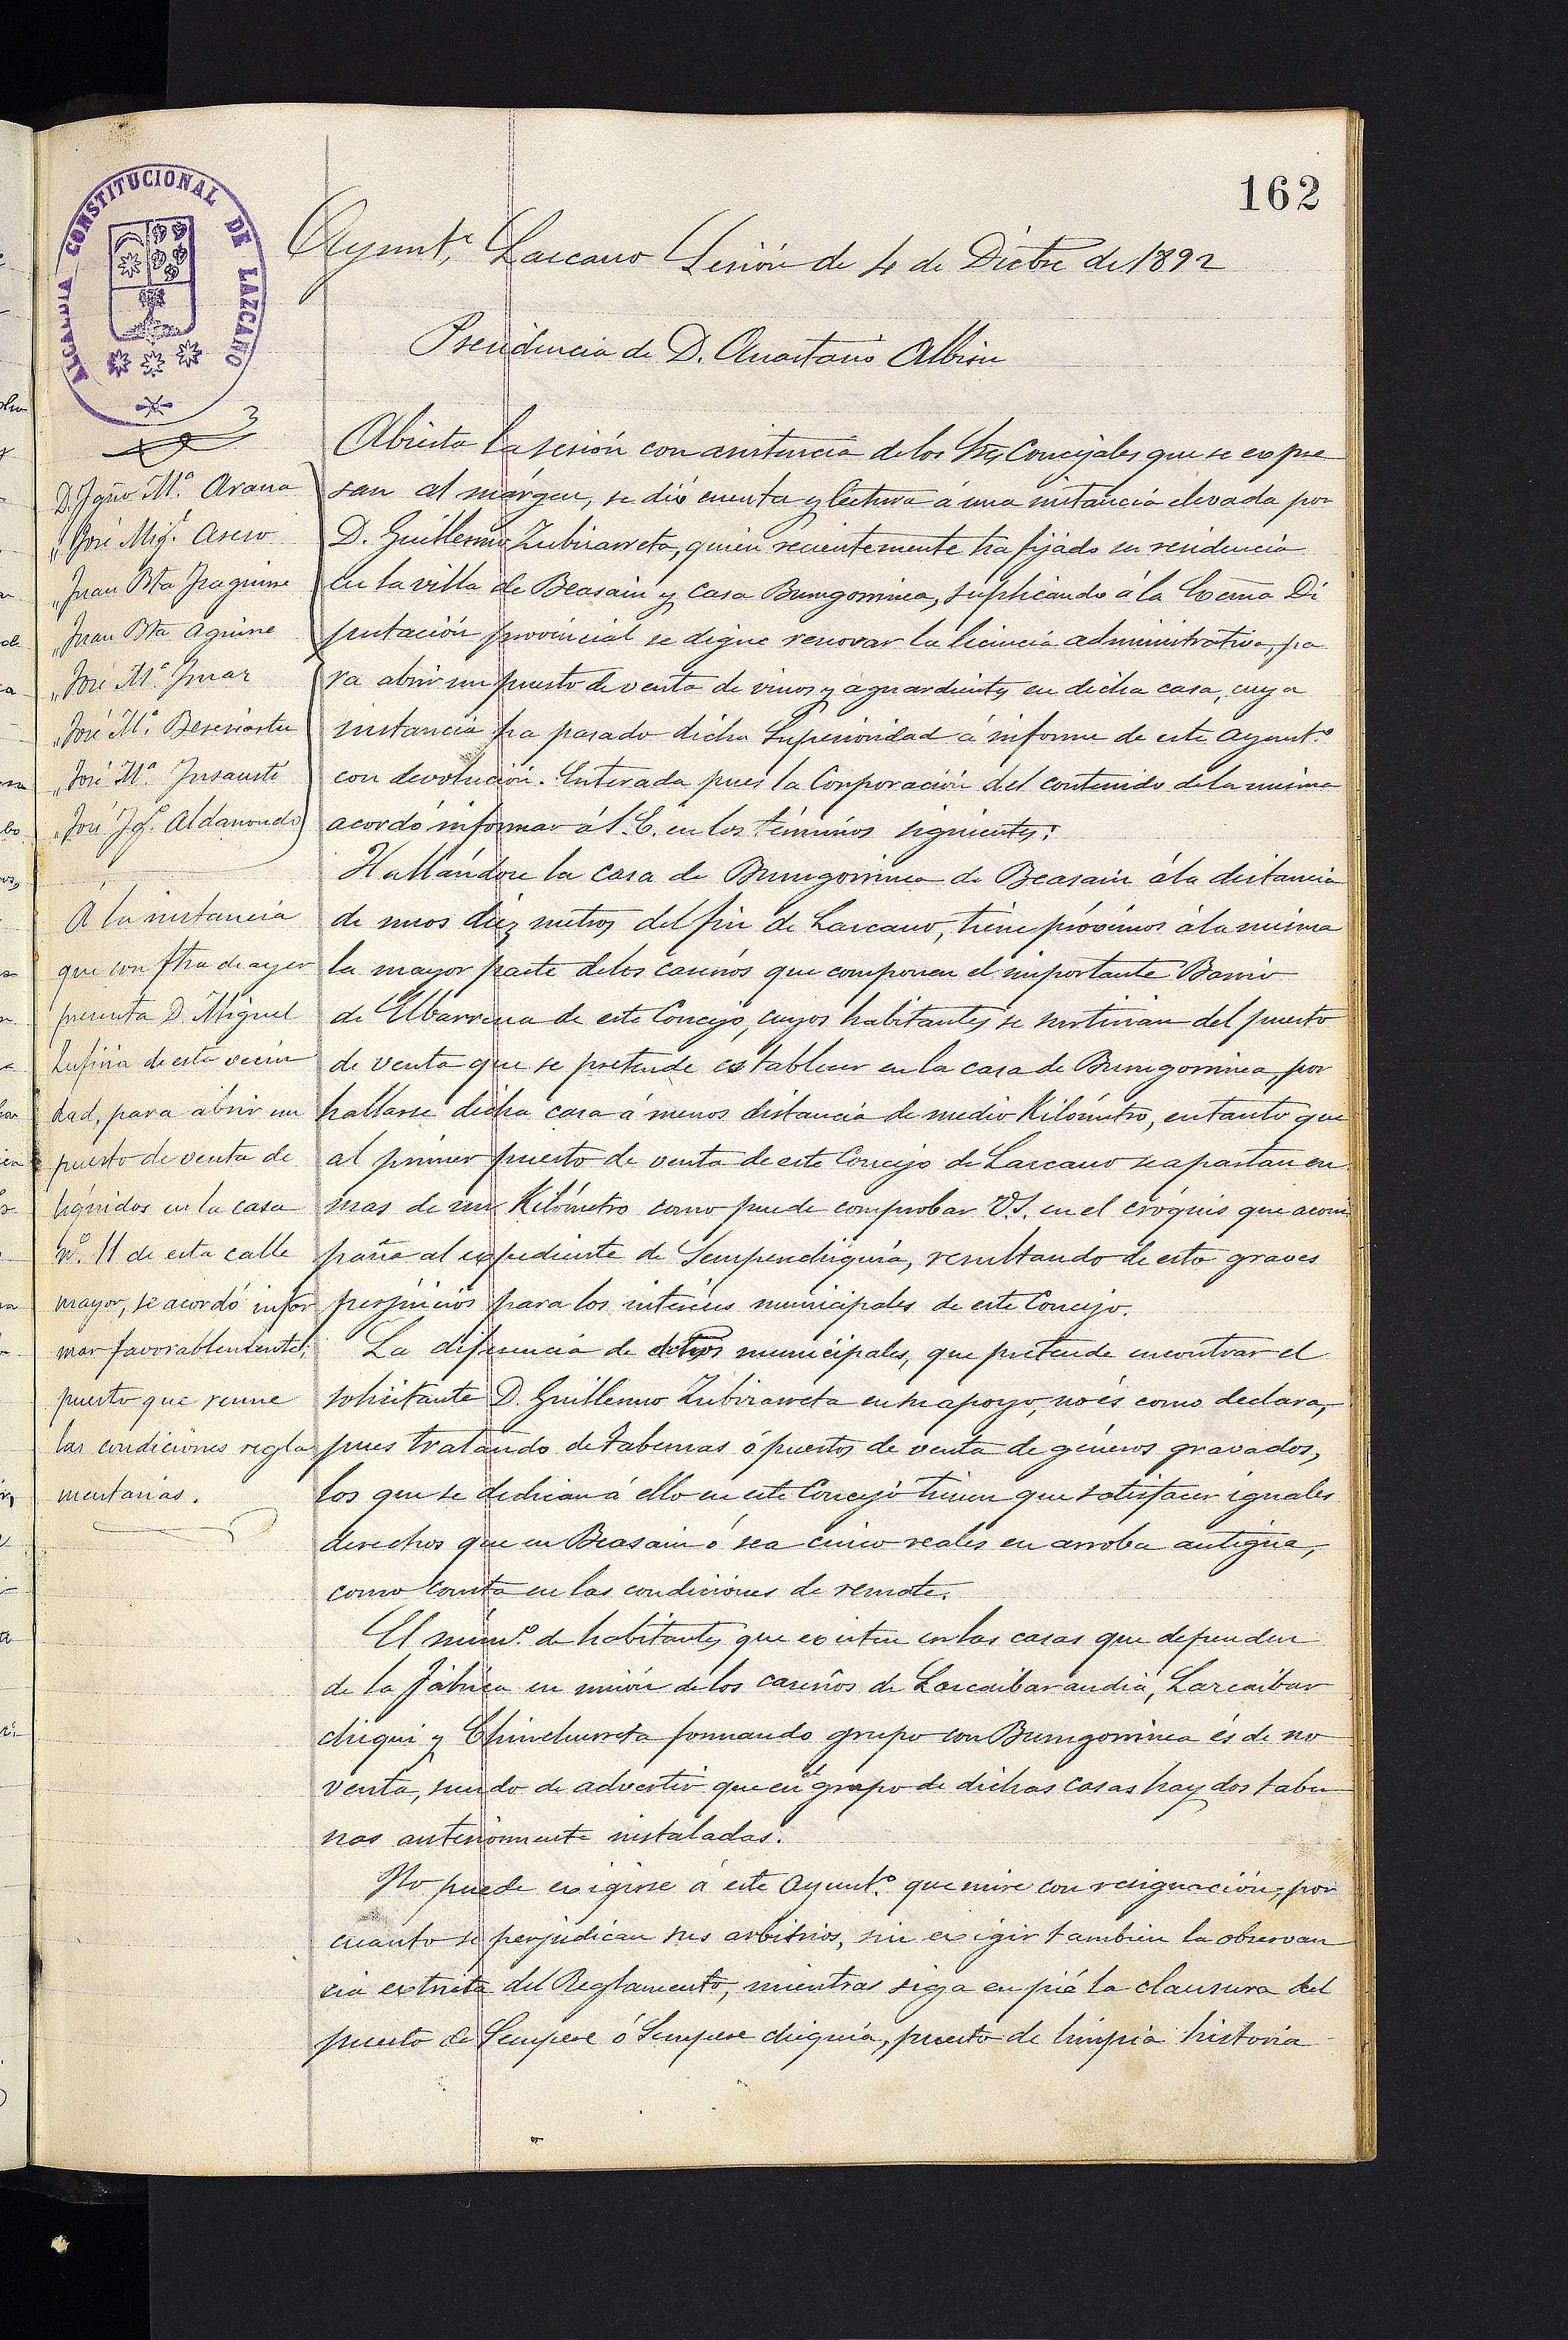 162
ALCALDIA CONSTITUCIONAL DE LAZCANO
Ayunt.º Lazcano Sesión de 4 de Dicbre de 1892
Presidencia de D. Anastasio Albisu
D. Ygno M.ª Arana
„ José Mig.l Asero
„ Juan Bta Yraguirre
„ Juan Bta Aguirre
„ José M.ª Ymaz
„ José M.ª Bereciartu
„ José M.ª Insausti
„ José Ig.º Aldanondo
A la instancia
que con fha de ayer
presenta D. Miguel
de esta vecin
dad, para abrir un
puesto de venta de
líquidos en la casa
nº. 11 de esta calle
mayor, se acordó infor
mar favorablemente,
puesto que reune
las condiciones regla
mentarias.
Abierta la sesión con asistencia de los Sres Concejales que se expre
san al márgen, se dió cuenta y lectura á una instancia elevada por
D. Guillermo Zubizarreta, quien recientemente ha fijado su residencia
en la villa de Beasain y casa Burugorrinea, suplicando á la Excma Di
putación provincial se digne renovar la licencia administrativa, pa
ra abrir un puesto de venta de vinos y aguardientes en dicha casa, cuya
instancia ha pasado dicha Superioridad á informe de este Ayunt.º
con devolución. Enterada pues la Corporación del contenido de la misma
acordó informar á S.E. en los términos siguientes:
Hallándose la casa de Burugorrinea de Beasain á la distancia
de unos diez metros del fin de Lazcano, tiene próximos á la misma
la mayor parte de los caseríos que componen el importante Barrio
de Elbarrena de este Concejo, cuyos habitantes se surtirian del puesto
de venta que se pretende establecer en la casa de Burugorrinea, por
hallarse dicha casa á menos distancia de medio Kilómetro, en tanto que
al primer puesto de venta de este Concejo de Lazcano se apartan en
mas de un Kilómetro como puede comprobar V.S. en el cróquis que acom
paña al expediente de Semperechiquia, resultando de esto graves
perjuicios para los intereses municipales de este Concejo.
La diferencia de dchos municipales, que pretende encontrar el
solicitante D. Guillermo Zubizarreta en su apoyo, no és como declara,
pues tratando de tabernas ó puestos de venta de géneros gravados,
los que se dedican á ello en este Concejo tienen que satisfacer iguales
derechos que en Beasain ó sea cinco reales en arroba antigua,
como consta en las condiciones de remate.
El núm.º de habitantes que existen en las casas que dependen
de la fábrica en unión de los caseríos de Lazcaibarandia, Lazcaibar
chiqui y Chinchurreta formando grupo con Burugorrinea és de no
venta, siendo de advertir que en el grupo de dichas casas hay dos taber
nas anteriormente instaladas.
No puede exigirse á este Ayunt.º que mire con resignación, por
cuanto se perjudican sus arbitrios, sin exigir tambien la observan
cia extricta del Reglamento, mientras siga en pié la clausura del
puesto de Sempere ó Sempere chiquia, puesto de limpia historia